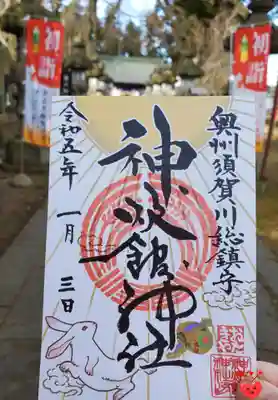 初詣
初詣
奥州須賀川総鎮守
神炊館神社
令和五年 一月 三日